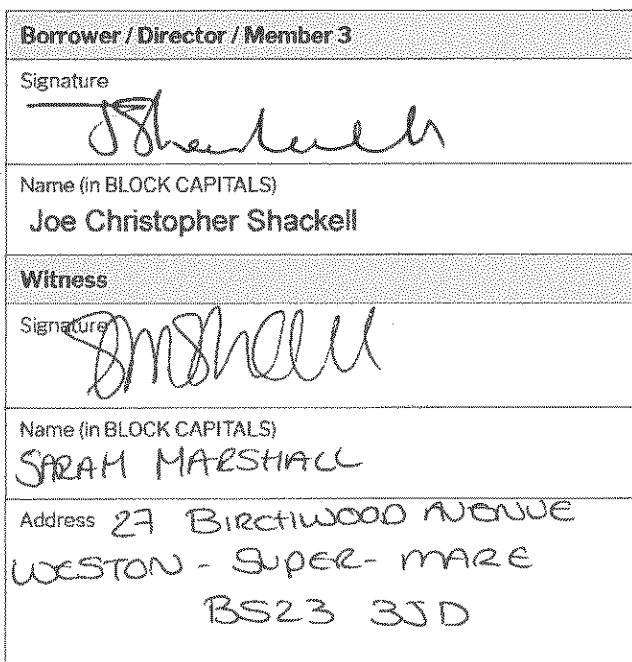 Borrower / Director / Member 3
Signature
JShackell
Name (in BLOCK CAPITALS)
Joe Christopher Shackell
Witness
Signature
Name (in BLOCK CAPITALS)
SARAH MARSHALL
Address 27 BIRCHWOOD AVENUE
WESTON - SUPER - MARE
BS23 3JD